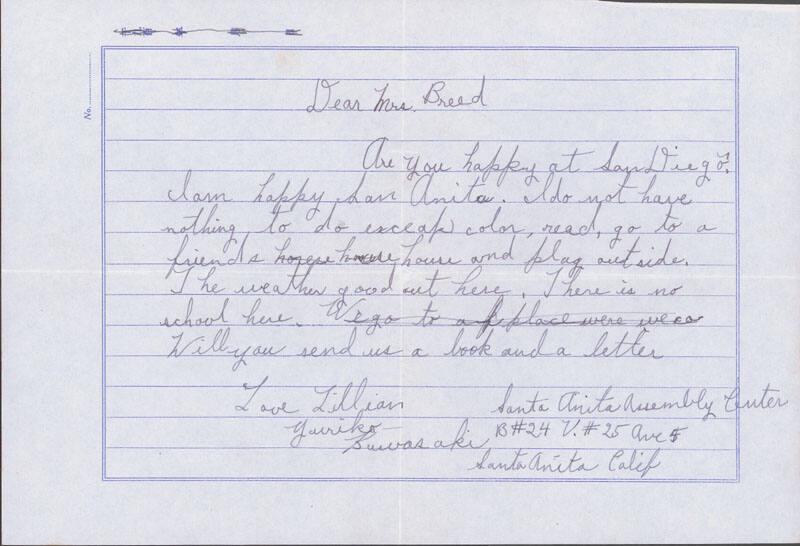 No.
Dear Mrs. Breed
Are you happy at San Diego?
I am happy San Anita. I do not have
nothing to do exceap color, read, go to a
friends house and play outside.
The weather good out here. There is no
school here. We go to a place were we
Will you send us a book and a letter
Love Lillian
Yuriko
Kawasaki
Santa Anita Assembly Center
B#24 V.#25 Ave 5
Santa Anita Calif